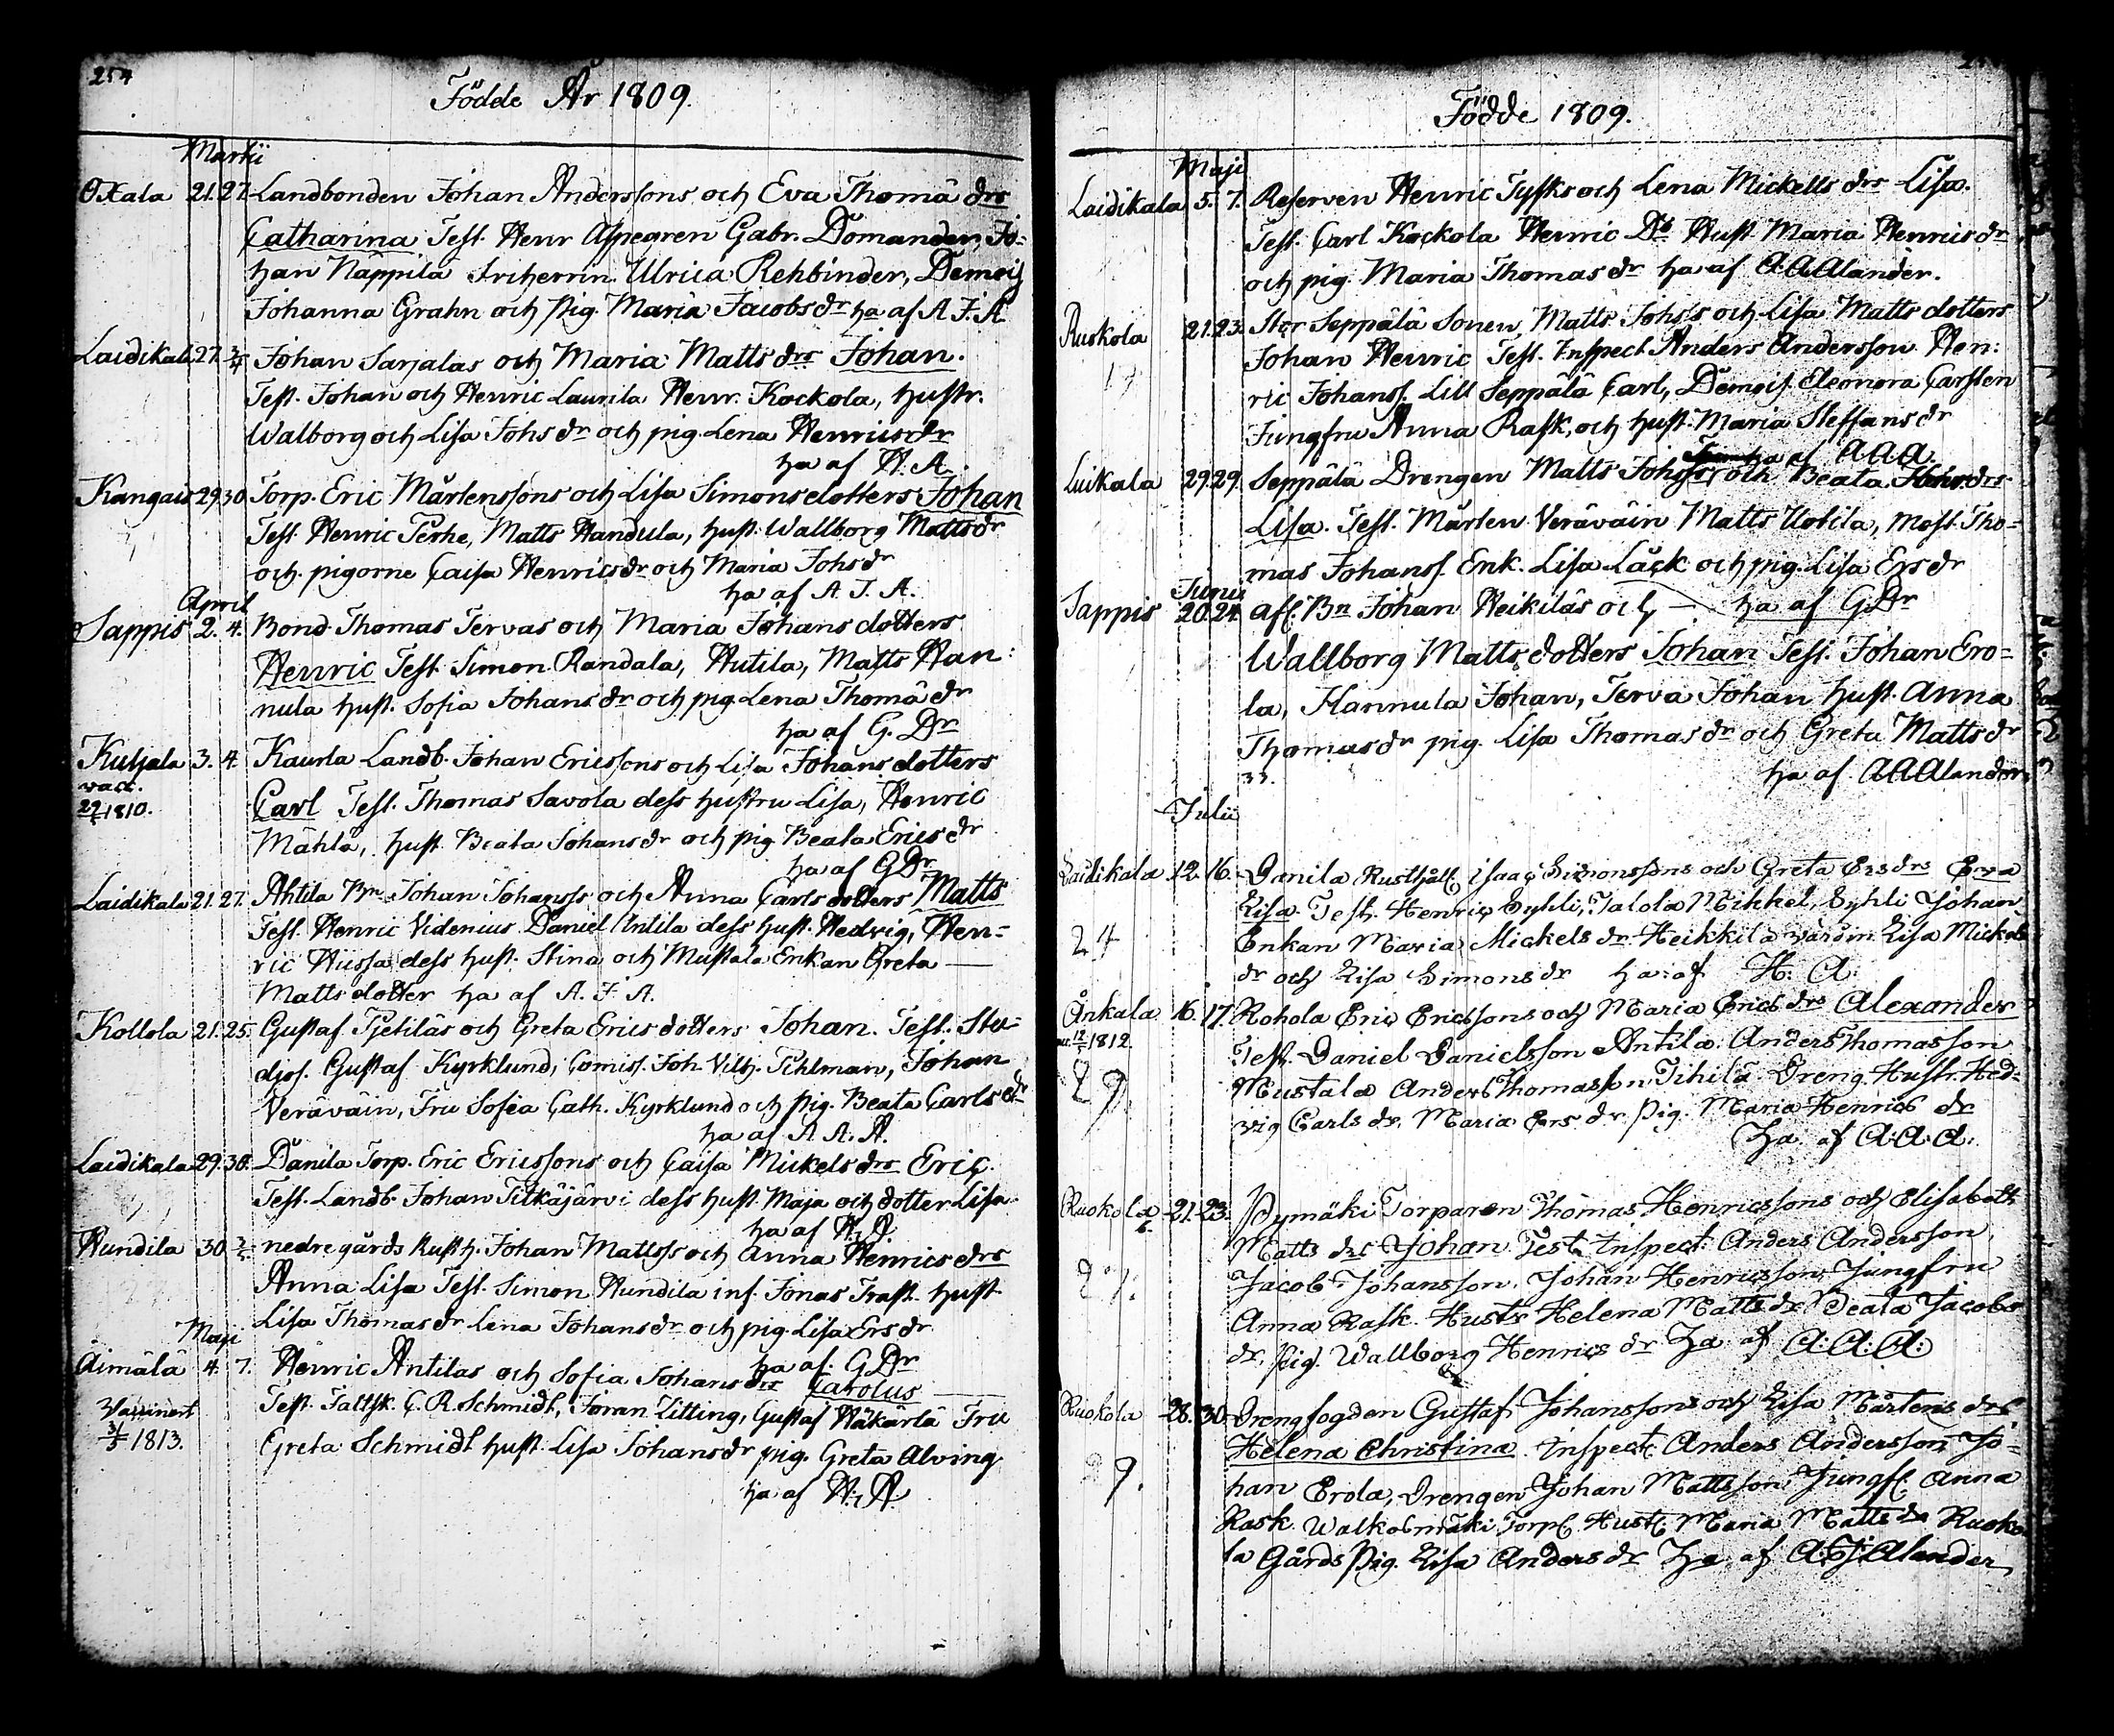 254
Födde År 1809.
Martii
Oxala 21. 27. Landbonden Johan Anderssons och Eva Thomä drs
Catharina Test. Henr Aspegren Gabr. Domander, Jo-
han Nappila Friherrin. Ulrica Rehbinder, Demois
Johanna Grahn och Pig. Maria Jacobs dr ha af A. J. A.
Laidikala 27. 3/4 Johan Sarjalas och Maria Matts drs Johan.
Test. Johan och Henric Laurila Henr. Kockola, hustr.
Walborg och Lisa Johs dr och pig. Lena Henrics dr
ha af H. A.
Kangais 29. 30. Torp. Eric Mårtenssons och Lisa Simonsdotters Johan
Test. Henric Perhe, Matts Handula, hust. Wallborg Matts dr
och pigorne Caisa Henrics dr och Maria Johs dr
ha af A. J. A.
April
Sappis 2. 4. Bond. Thomas Tervas och Maria Johans dotters
Henric Test. Simon Randala, Hutila, Matts Han:
nula hust. Sofia Johans dr och pig. Lena Thomä dr
ha af G. Dr
Kutjala 3. 4. Kaurla Landb. Johan Ericssons och Lisa Johans dotters
vacc.
29/1810.
Carl Test. Thomas Savola dess hustru Lisa, Henric
Mählä, hust. Beata Johans dr och pig. Beata Erics dr
ha af G. Dr
Laidikala 21. 27. Ahtila Bn. Johan Johanss och Anna Carls dotters Matts
Test. Henric Videnius Daniel Untila dess hust. Hedvig, Hen-
ric Hiissa dess hust. Stina och Mustala Enkan Greta —
Matts dotter ha af A. J. A.
Kollola 21. 25. Gustaf Pjetiläs och Greta Erics dotters Johan. Test. Stu-
dios. Gustaf Kyrklund, Comiss. Joh. Vilh. Pihlman, Johan
Veräväin, Fru Sofia Cath. Kyrklund och pig. Beata Carls dr
ha af A. A. A.
Laidikala 29. 30. Danila Torp. Eric Ericssons och Caisa Mickels drs Eric.
Test. Landb. Johan Pitkäjärvi dess hust. Maja och dotter Lisa
ha af H. A.
Hundila 30. 2/5. nedregårds Rusth. Johan Mattss och Anna Henrics drs
Anna Lisa Test. Simon Hundila inh. Jonas Frast. hust.
Lisa Thomas dr Lena Johans dr och pig. Lisa Ers dr
ha af G. Dr
Maji
Äimälä 4. 7. Henric Antilas och Sofia Johans drs Carolus
Test. Faltsk. C. R. Schmidt, Jöran Zitting, Gustaf Häkärlä Fru
Vaccinerat
3/5 1813.
Greta Schmidt hust. Lisa Johans dr pig. Greta Alving
ha af H. A.
Födde 1809.
Maji
Laidikala 5. 7. Reserven Henric Tysks och Lena Mickells drs Lisa.
Test. Carl Kockola Henric Do Hust. Maria Henrics dr
och pig. Maria Thomas dr ha af A. A. Alander.
Ruskola 21. 23. Stor Seppälä Sonen Matts Johs's och Lisa Matts dotters
17
Johan Henric Test. Inspect. Anders Andersson Hen:
ric Johanss. Lill Seppälä Carl, Demois. Eleonora Carsten
Jungfru Anna Rask, och hust. Maria Steffans dr
ha af A A A.
Luikala 29. 29. Seppälä Drengen Matts Johss och Beata drs
Lisa. Test. Mårten Veräväin Matts Uotila, Tho-
mas Johanss. Enk. Lisa Läck och pig. Lisa Ers dr
ha af G. Dr
Junii
Sappis 20. 24. Bn Johan Heikiläs och
Wallborg Matts dotters Johan Test. Johan Ero-
la, Hannula Johan, Terva Johan hust. Anna
Thomas dr pig. Lisa Thomas dr och Greta Matts dr
33.
ha af A A Alander.
Julii
Laidikala 12. 16. Danila Rusthåll. Isaac Simonssons och Greta Ers drs Eva
Lisa. Test. Henric Syhli, Talola Mikkel, Syhli Johan
24
Enkan Maria Mickels dr Heikkilä värdin. Lisa Mickels
dr och Lisa Simons dr ha af H: A:
Änkala 16. 17. Rohola Eric Ericssons och Maria Erics drs Alexander
1812.
Test. Daniel Danielsson Antila. Anders Thomasson
29
Mustala Anders Thomasson Tihilä Dreng. Hustr. Hed-
vig Carls dr. Maria Ers dr. Pig. Maria Henrics dr
ha af A: A: A:
Ruokola 21. 23. Pymäki Torparen Thomas Henricssons och Elisabeth
Matts drs Johan Test. Inspect. Anders Andersson,
27.
Jacob Johansson. Johan Henricsson, Jungfru
Anna Rask. Hustr. Helena Matts dr. Beata Jacobs
dr. Pig. Wallborg Henrics dr ha af A: A: A:
Ruokola 28. 30. Drengfogden Gustaf Johanssons och Lisa Mårtens drs
Helena Christina Inspect. Anders Andersson Jo-
29.
han Erola, Drengen Johan Mattsson Jungf. Anna
Rask. Walkolmäki Torp. Hust. Maria Matts dr Ruoko
la Gårds Pig. Lisa Anders dr ha af A: J: Alander